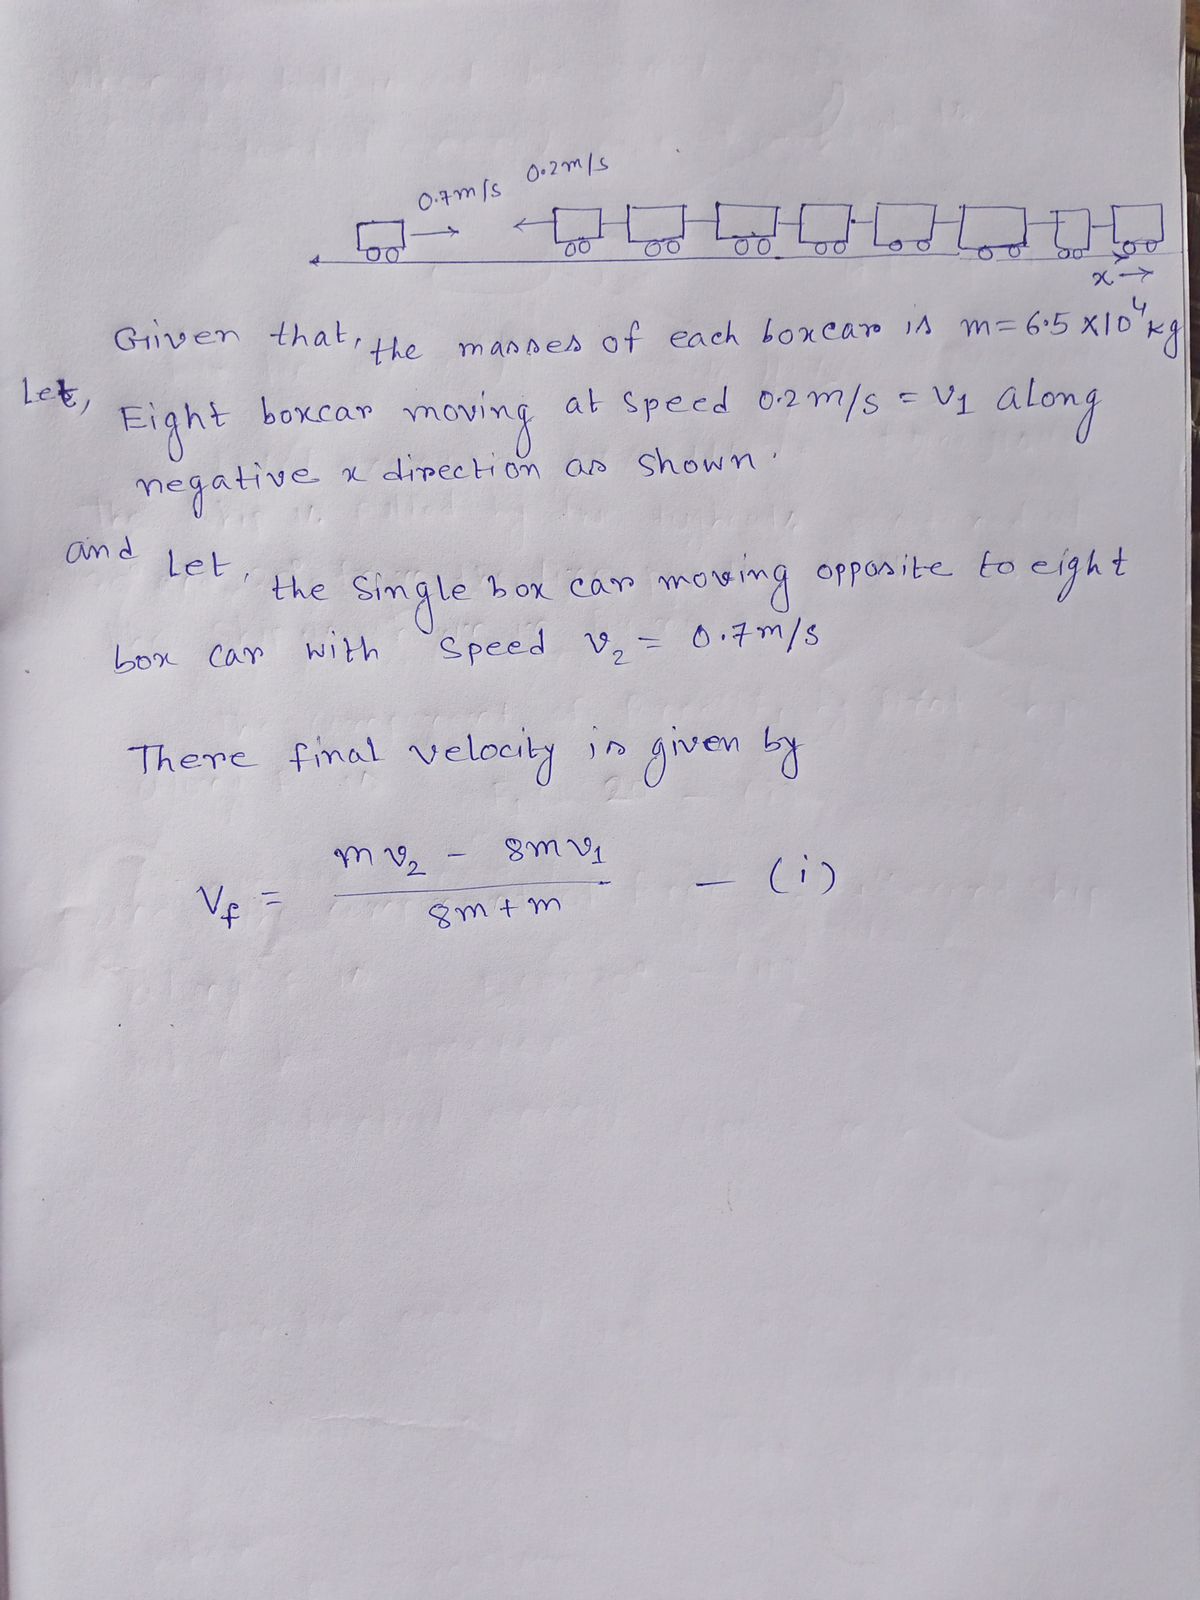 0.7m/s 0.2m/s
x→
Given that, the masses of each boxcar is m=6.5×10⁴kg
Let,
Eight boxcar moving at speed 0.2m/s = v₁ along
negative x direction as shown.
and Let, the single box car moving opposite to eight
box car with speed v₂ = 0.7m/s
There final velocity is given by
V_f = (mv₂ - 8mv₁)/(8m+m) - (i)